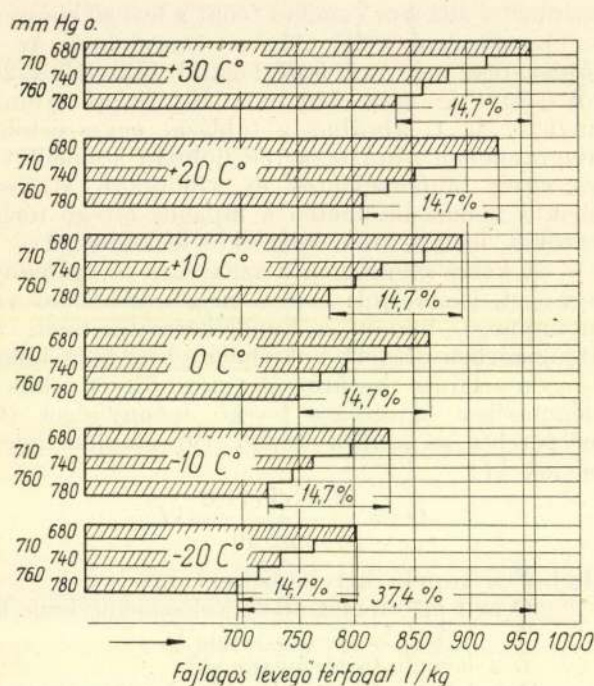 mm Hg o.
680
710
740
760
780
+30 C°
14,7%
680
710
740
760
780
+20 C°
14,7%
680
710
740
760
780
+10 C°
14,7%
680
710
740
760
780
0 C°
14,7%
680
710
740
760
780
-10 C°
14,7%
680
710
740
760
780
-20 C°
14,7%
37,4 %
700 750 800 850 900 950 1000
Fajlagos levegő térfogat l/kg